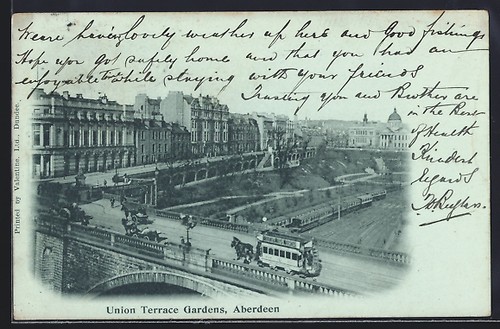 We are havin lovely weather up here and Good fishings
Hope you got safely home and that you had an
enjoyable while staying with your friends
Trusting you and Brother are
in the Best
of Health
Kindest
regards
Printed by Valentine, Ltd., Dundee.
Union Terrace Gardens, Aberdeen